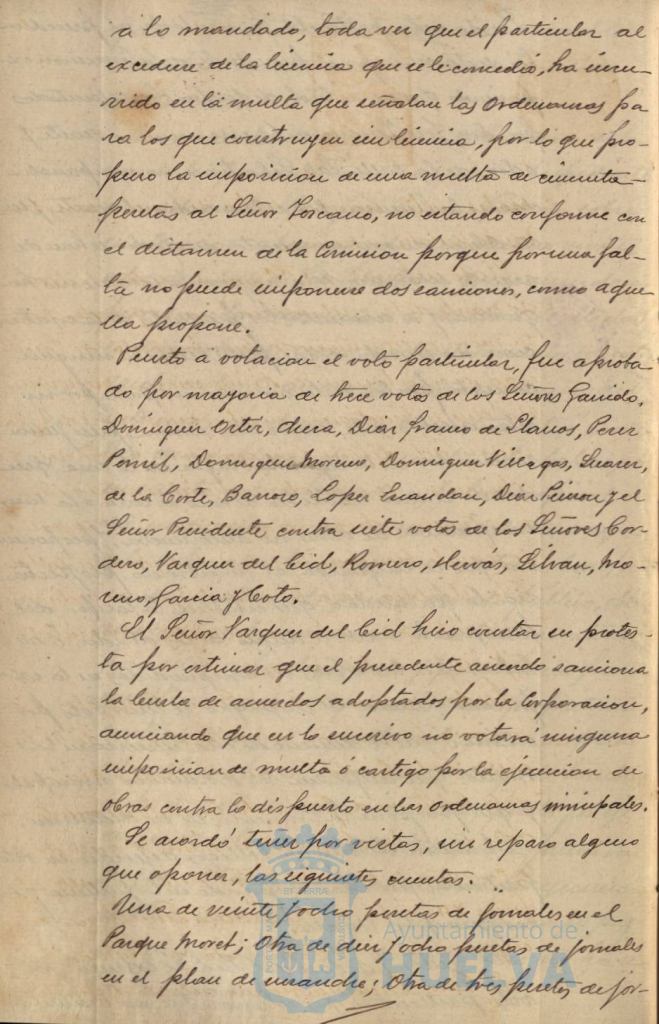 á lo mandado, toda vez que el particular al
excederse de la licencia que se le concedió, ha incu-
rrido en la multa que señalan las Ordenanzas pa
ra los que construyen sin licencia, por lo que pro-
puso la imposicion de una multa de cincuenta
pesetas al Señor Toscano, no estando conforme con
el dictamen de la Comision porque por una fal-
ta no puede imponerse dos sanciones, como aque
lla propone.
Puesto á votacion el voto particular, fue aproba
do por mayoria de trece votos de los Señores Garrido,
Dominguez Ortiz, Checa, Diaz Franco de Llanos, Perez
Dominguez Moreno, Dominguez Villegas, Suarez,
de la Corte, Barroso, Lopez Diaz y el
Señor Presidente contra siete votos de los Señores Cor-
dero, Vazquez del Cid, Romero, Hervás, Silvan, Mo-
reno, Garcia y Coto.
El Señor Vazquez del Cid hizo constar su protes-
ta por estimar que el precedente acuerdo sanciona
la burla de acuerdos adoptados por la Corporacion,
anunciando que en lo sucesivo no votará ninguna
imposicion de multa ó castigo por la ejecucion de
obras contra lo dispuesto en las Ordenanzas
Se acordó tener por vistas, sin reparo alguno
que oponer, las siguientes cuentas.
Una de veinte y ocho pesetas de jornales en el
Parque Moret; Otra de diez y ocho pesetas de jornales
en el plan de ensanche; Otra de tres pesetas de jor-
Ayuntamiento de
HUELVA